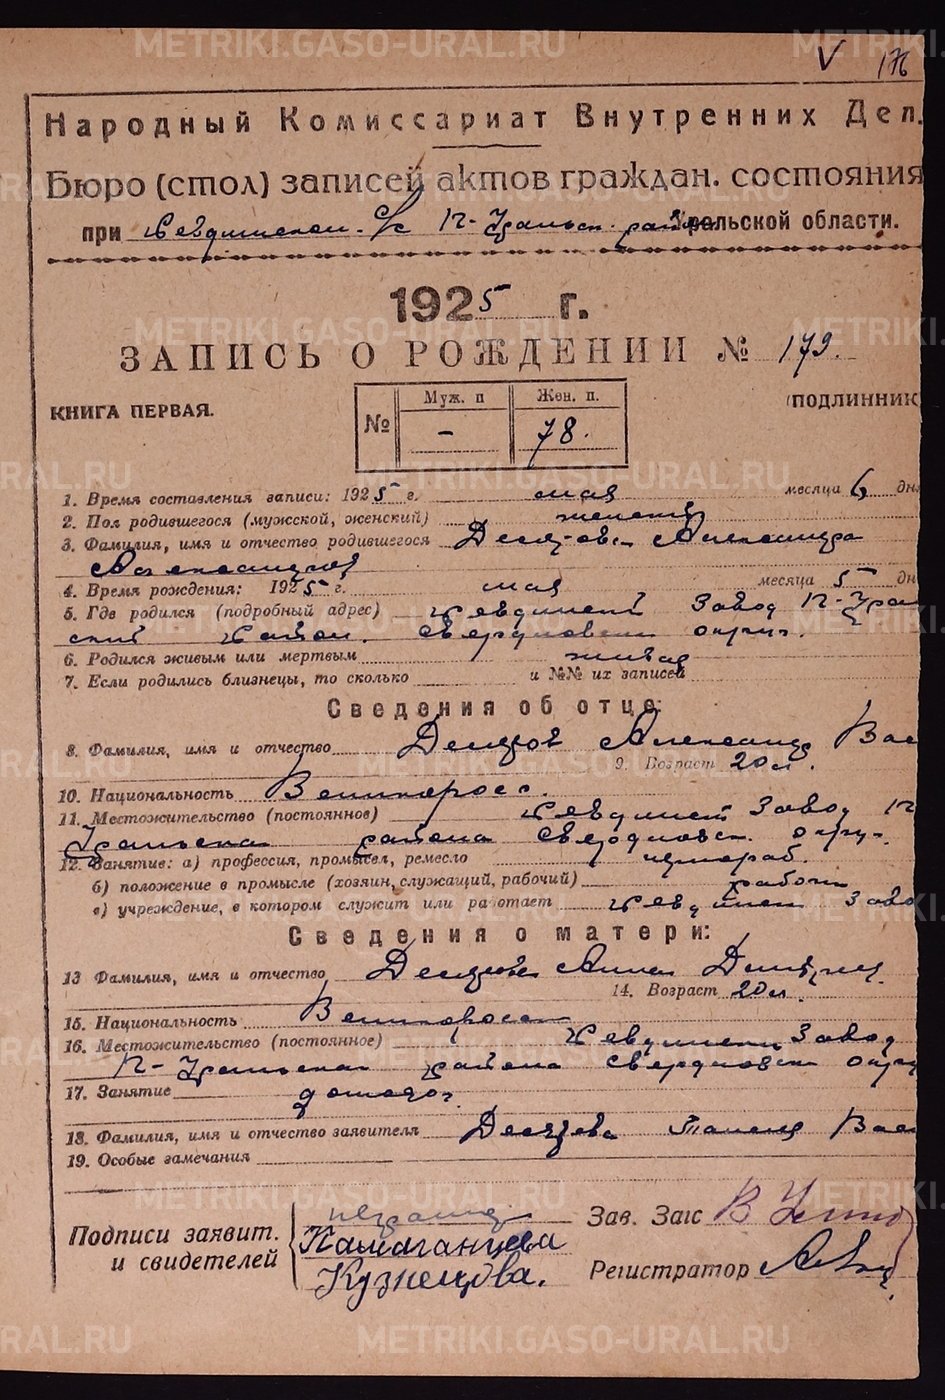 METRIKI.GASO-URAL.RU
V 176
Народный Комиссариат Внутренних Дел.
Бюро (стол) записей актов граждан. состояния
при Невдинском с/с П-Уральск. район Уральской области.
1925 г.
ЗАПИСЬ О РОЖДЕНИИ № 179.
КНИГА ПЕРВАЯ.
№ Муж. п Жен. п.
- 78.
(ПОДЛИННИК
1. Время составления записи: 1925 г. мая месяца 6 дн
2. Пол родившегося (мужской, женский) женский
3. Фамилия, имя и отчество родившегося Александра
Александров
4. Время рождения: 1925 г. мая месяца 5 дн
5. Где родился (подробный адрес) завод П-Урал
ский район. Свердловск округ.
6. Родился живым или мертвым живая
7. Если родились близнецы, то сколько и №№ их записей
Сведения об отце:
8. Фамилия, имя и отчество Александр Вас
9. Возраст 20 л.
10. Национальность Великоросс.
11. Местожительство (постоянное) завод П
Уральска района Свердловск. округ.
12. Занятие: а) профессия, промысел, ремесло чернораб.
б) положение в промысле (хозяин, служащий, рабочий) рабочий
в) учреждение, в котором служит или работает заво
Сведения о матери:
13 Фамилия, имя и отчество Анна
14. Возраст 20 л.
15. Национальность Великоросс
16. Местожительство (постоянное) завод
П-Уральска района Свердловск округ
17. Занятие домохоз.
18. Фамилия, имя и отчество заявителя Вас
19. Особые замечания
Подписи заявит.
и свидетелей
неграмотна
Паматанцева
Кузнецова.
Зав. Загс В
Регистратор